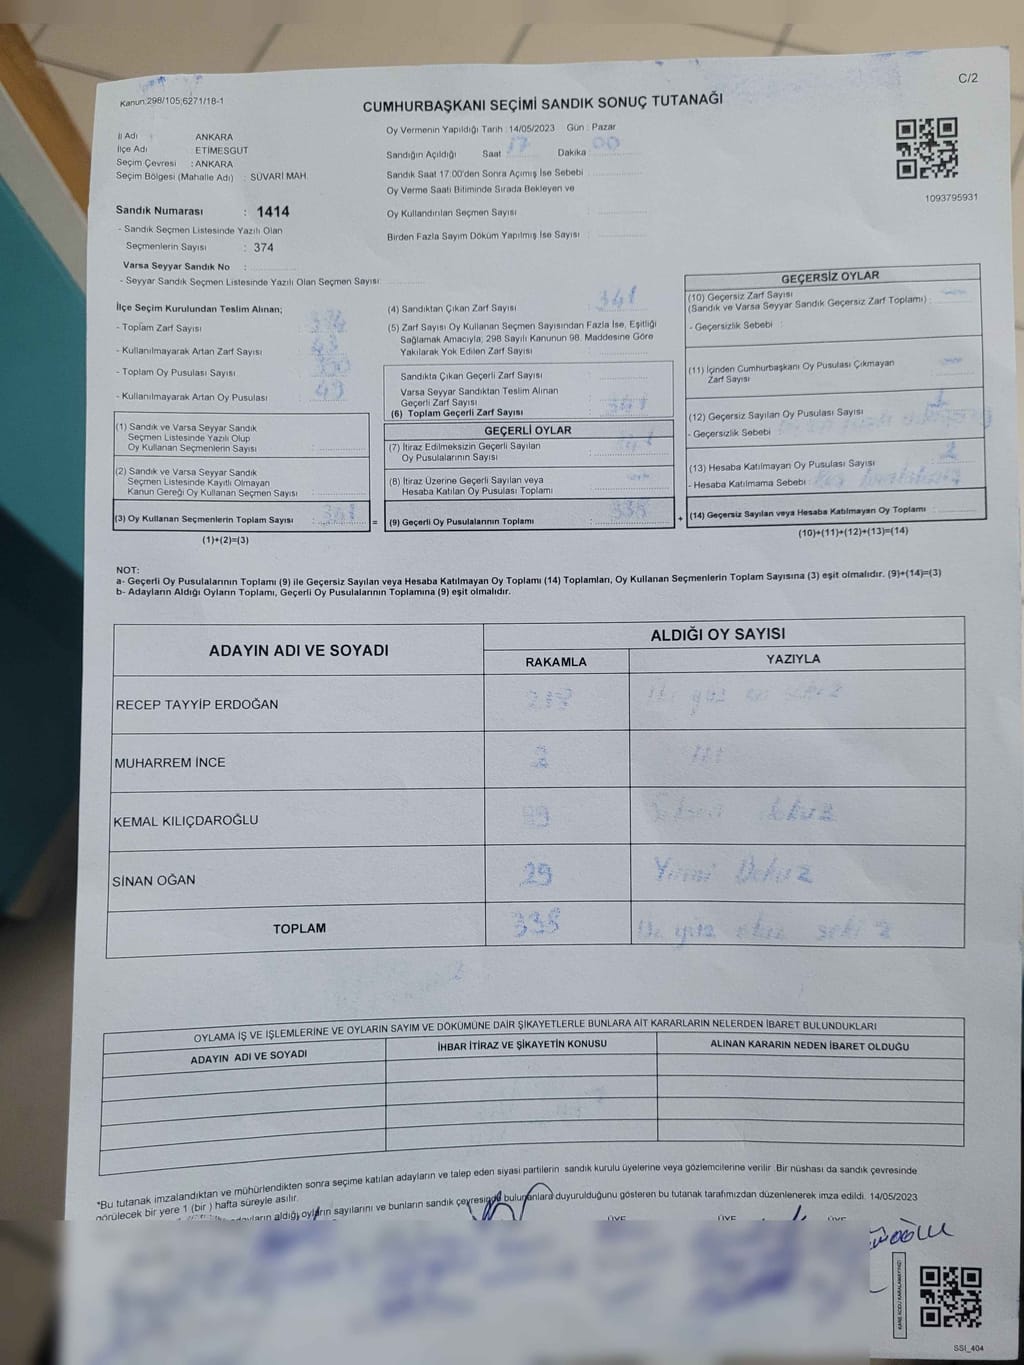 C/2
Kanun:298/105;6271/18-1
CUMHURBAŞKANI SEÇİMİ SANDIK SONUÇ TUTANAĞI
İl Adı ANKARA
İlçe Adı : ETİMESGUT
Seçim Çevresi : ANKARA
Seçim Bölgesi (Mahalle Adı) : SÜVARİ MAH.
Sandık Numarası : 1414
- Sandık Seçmen Listesinde Yazılı Olan
Seçmenlerin Sayısı : 374
Varsa Seyyar Sandık No :
- Seyyar Sandık Seçmen Listesinde Yazılı Olan Seçmen Sayısı:
Oy Vermenin Yapıldığı Tarih : 14/05/2023 Gün : Pazar
Sandığın Açıldığı Saat 17 Dakika 00
Sandık Saat 17:00'den Sonra Açımış İse Sebebi
Oy Verme Saati Bitiminde Sırada Bekleyen ve
Oy Kullandırılan Seçmen Sayısı :
Birden Fazla Sayım Döküm Yapılmış İse Sayısı :
1093795931
İlçe Seçim Kurulundan Teslim Alınan;
- Toplam Zarf Sayısı :
- Kullanılmayarak Artan Zarf Sayısı :
- Toplam Oy Pusulası Sayısı :
- Kullanılmayarak Artan Oy Pusulası : 49
(1) Sandık ve Varsa Seyyar Sandık
Seçmen Listesinde Yazılı Olup
Oy Kullanan Seçmenlerin Sayısı :
(2) Sandık ve Varsa Seyyar Sandık
Seçmen Listesinde Kayıtlı Olmayan
Kanun Gereği Oy Kullanan Seçmen Sayısı :
(3) Oy Kullanan Seçmenlerin Toplam Sayısı : 341 =
(1)+(2)=(3)
(4) Sandıktan Çıkan Zarf Sayısı : 341
(5) Zarf Sayısı Oy Kullanan Seçmen Sayısından Fazla İse, Eşitliği
Sağlamak Amacıyla; 298 Sayılı Kanunun 98. Maddesine Göre
Yakılarak Yok Edilen Zarf Sayısı :
Sandıkta Çıkan Geçerli Zarf Sayısı :
Varsa Seyyar Sandıktan Teslim Alınan
Geçerli Zarf Sayısı :
(6) Toplam Geçerli Zarf Sayısı : 341
GEÇERLİ OYLAR
(7) İtiraz Edilmeksizin Geçerli Sayılan
Oy Pusulalarının Sayısı :
(8) İtiraz Üzerine Geçerli Sayılan veya
Hesaba Katılan Oy Pusulası Toplamı :
(9) Geçerli Oy Pusulalarının Toplamı : 338 +
GEÇERSİZ OYLAR
(10) Geçersiz Zarf Sayısı
(Sandık ve Varsa Seyyar Sandık Geçersiz Zarf Toplamı) :
- Geçersizlik Sebebi :
(11) İçinden Cumhurbaşkanı Oy Pusulası Çıkmayan
Zarf Sayısı :
(12) Geçersiz Sayılan Oy Pusulası Sayısı : 1
- Geçersizlik Sebebi :
(13) Hesaba Katılmayan Oy Pusulası Sayısı : 2
- Hesaba Katılmama Sebebi :
(14) Geçersiz Sayılan veya Hesaba Katılmayan Oy Toplamı :
(10)+(11)+(12)+(13)=(14)
NOT:
a- Geçerli Oy Pusulalarının Toplamı (9) ile Geçersiz Sayılan veya Hesaba Katılmayan Oy Toplamı (14) Toplamları, Oy Kullanan Seçmenlerin Toplam Sayısına (3) eşit olmalıdır. (9)+(14)=(3)
b- Adayların Aldığı Oyların Toplamı, Geçerli Oy Pusulalarının Toplamına (9) eşit olmalıdır.
ADAYIN ADI VE SOYADI ALDIĞI OY SAYISI
RAKAMLA YAZIYLA
RECEP TAYYİP ERDOĞAN
MUHARREM İNCE 2 iki
KEMAL KILIÇDAROĞLU
SİNAN OĞAN 29 Yirmi Dokuz
TOPLAM 338 Üç yüz otuz sekiz
OYLAMA İŞ VE İŞLEMLERİNE VE OYLARIN SAYIM VE DÖKÜMÜNE DAİR ŞİKAYETLERLE BUNLARA AİT KARARLARIN NELERDEN İBARET BULUNDUKLARI
ADAYIN ADI VE SOYADI İHBAR İTİRAZ VE ŞİKAYETİN KONUSU ALINAN KARARIN NEDEN İBARET OLDUĞU
*Bu tutanak imzalandıktan ve mühürlendikten sonra seçime katılan adayların ve talep eden siyasi partilerin sandık kurulu üyelerine veya gözlemcilerine verilir. Bir nüshası da sandık çevresinde
görülecek bir yere 1 (bir) hafta süreyle asılır.
aldığı oyların sayılarını ve bunların sandık çevresinde bulunanlara duyurulduğunu gösteren bu tutanak tarafımızdan düzenlenerek imza edildi. 14/05/2023
ÜYE ÜYE ÜYE
KARE KODU KARALAMAYINIZ!
SSİ_404